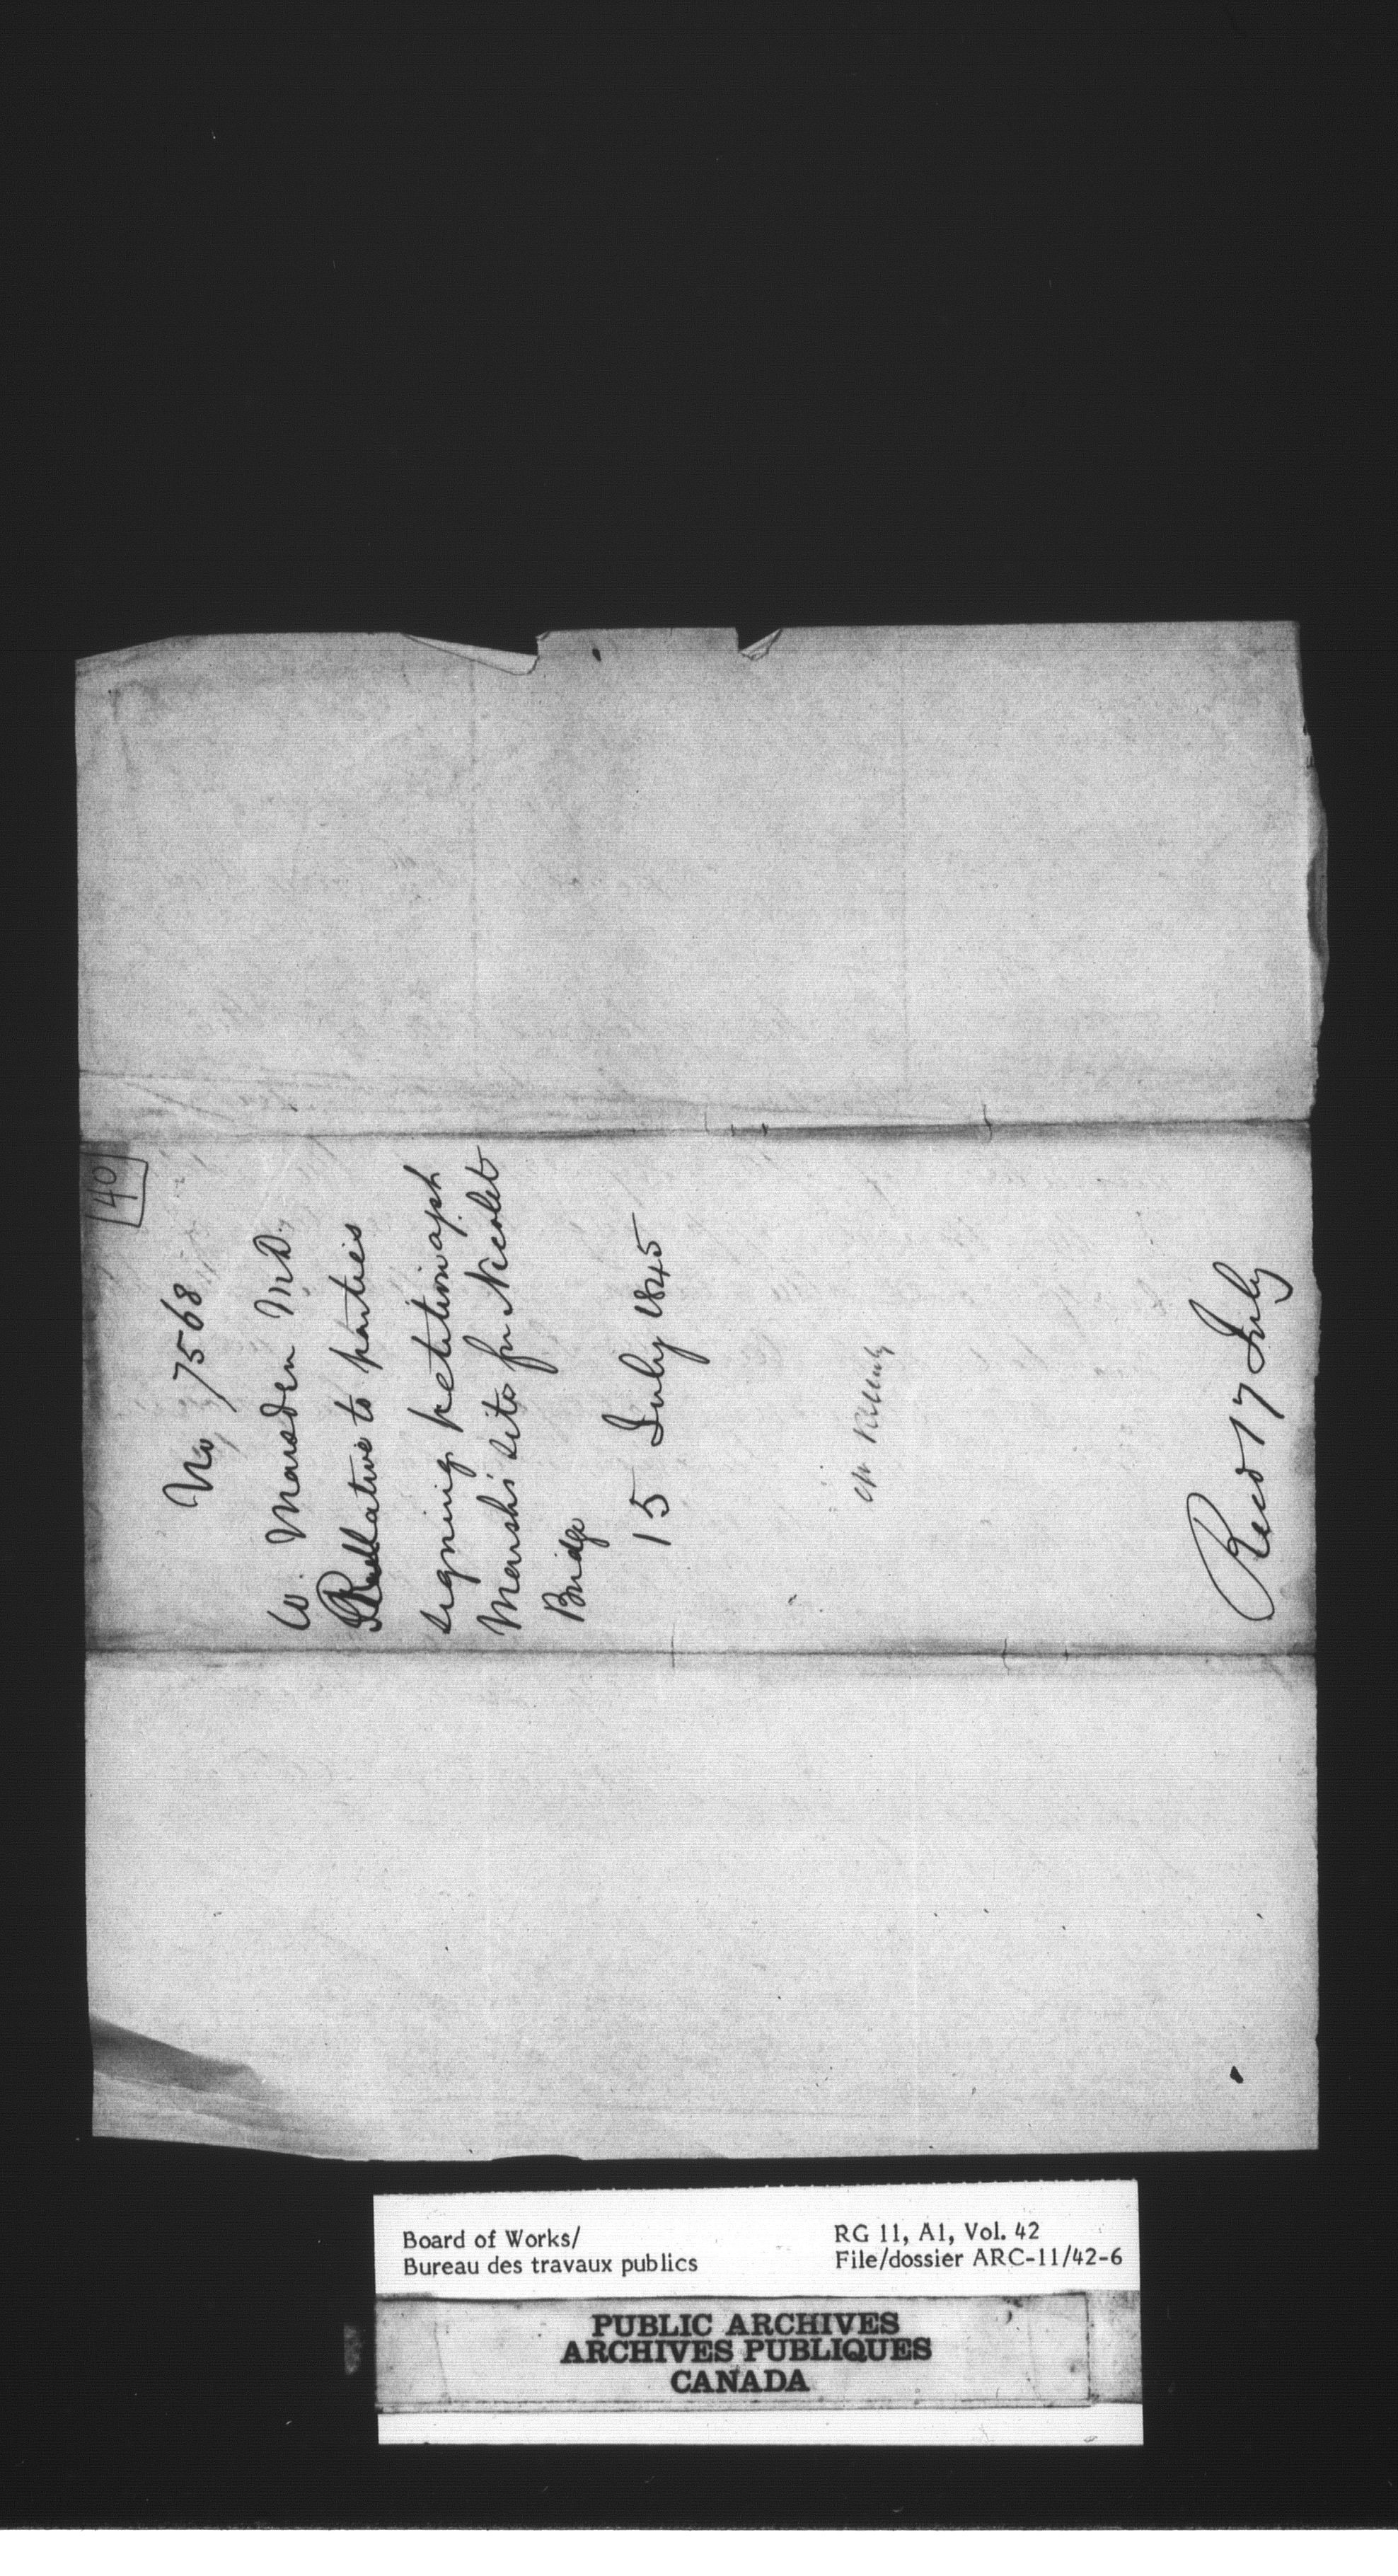 40
No, 7568
W. Marsden M.D.
Relative to parties
signing petition agst
Marsh's site for Nicolet
Bridge
15 July 1845
Mr
Recd 17 July
Board of Works/
Bureau des travaux publics
RG 11, A1, Vol. 42
File/dossier ARC-11/42-6
PUBLIC ARCHIVES
ARCHIVES PUBLIQUES
CANADA